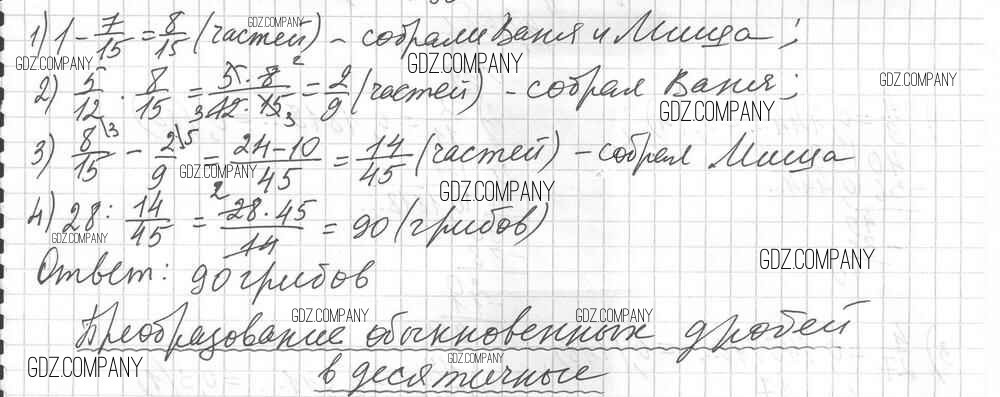 1) 1 - 7/15 = 8/15 (частей) - собрали Ваня и Миша;
2) 5/12 · 8/15 = 5·8/12·15 = 2/9 (частей) - собрал Ваня;
3) 8/15 - 2/9 = 24-10/45 = 14/45 (частей) - собрал Миша
4) 28 : 14/45 = 28·45/14 = 90 (грибов)
Ответ: 90 грибов
Преобразование обыкновенных дробей
в десятичные
GDZ.COMPANY
GDZ.COMPANY
GDZ.COMPANY
GDZ.COMPANY
GDZ.COMPANY
GDZ.COMPANY
GDZ.COMPANY
GDZ.COMPANY
GDZ.COMPANY
GDZ.COMPANY
GDZ.COMPANY
GDZ.COMPANY
GDZ.COMPANY